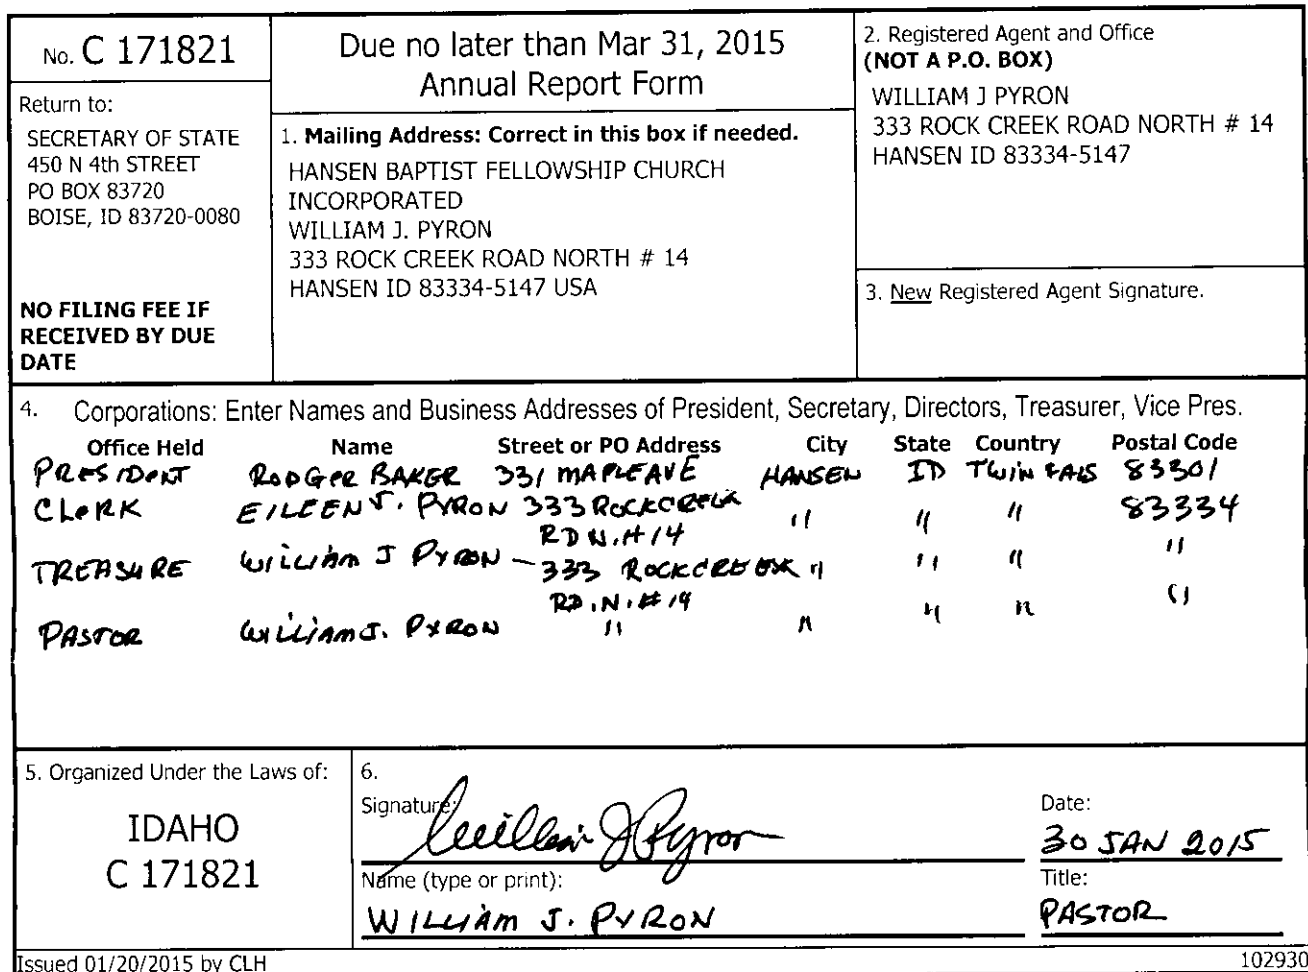 No. C 171821
Return to:
SECRETARY OF STATE
450 N 4th STREET
PO BOX 83720
BOISE, ID 83720-0080
NO FILING FEE IF
RECEIVED BY DUE
DATE
Due no later than Mar 31, 2015
Annual Report Form
1. Mailing Address: Correct in this box if needed.
HANSEN BAPTIST FELLOWSHIP CHURCH
INCORPORATED
WILLIAM J. PYRON
333 ROCK CREEK ROAD NORTH # 14
HANSEN ID 83334-5147 USA
2. Registered Agent and Office
(NOT A P.O. BOX)
WILLIAM J PYRON
333 ROCK CREEK ROAD NORTH # 14
HANSEN ID 83334-5147
3. New Registered Agent Signature.
4. Corporations: Enter Names and Business Addresses of President, Secretary, Directors, Treasurer, Vice Pres.
Office Held Name Street or PO Address City State Country Postal Code
PRESIDENT RODGER BAKER 331 MAPLE AVE HANSEN ID TWIN FALLS 83301
CLERK EILEEN J. PYRON 333 ROCKCREEK " " " 83334
RD N. #14
TREASURE WILLIAM J PYRON - 333 ROCKCREEK " " " "
RD. N. #14
PASTOR WILLIAM J. PYRON " " " " "
5. Organized Under the Laws of:
IDAHO
C 171821
6.
Signature: William J Pyron
Date:
30 JAN 2015
Name (type or print):
WILLIAM J. PYRON
Title:
PASTOR
Issued 01/20/2015 by CLH
102930